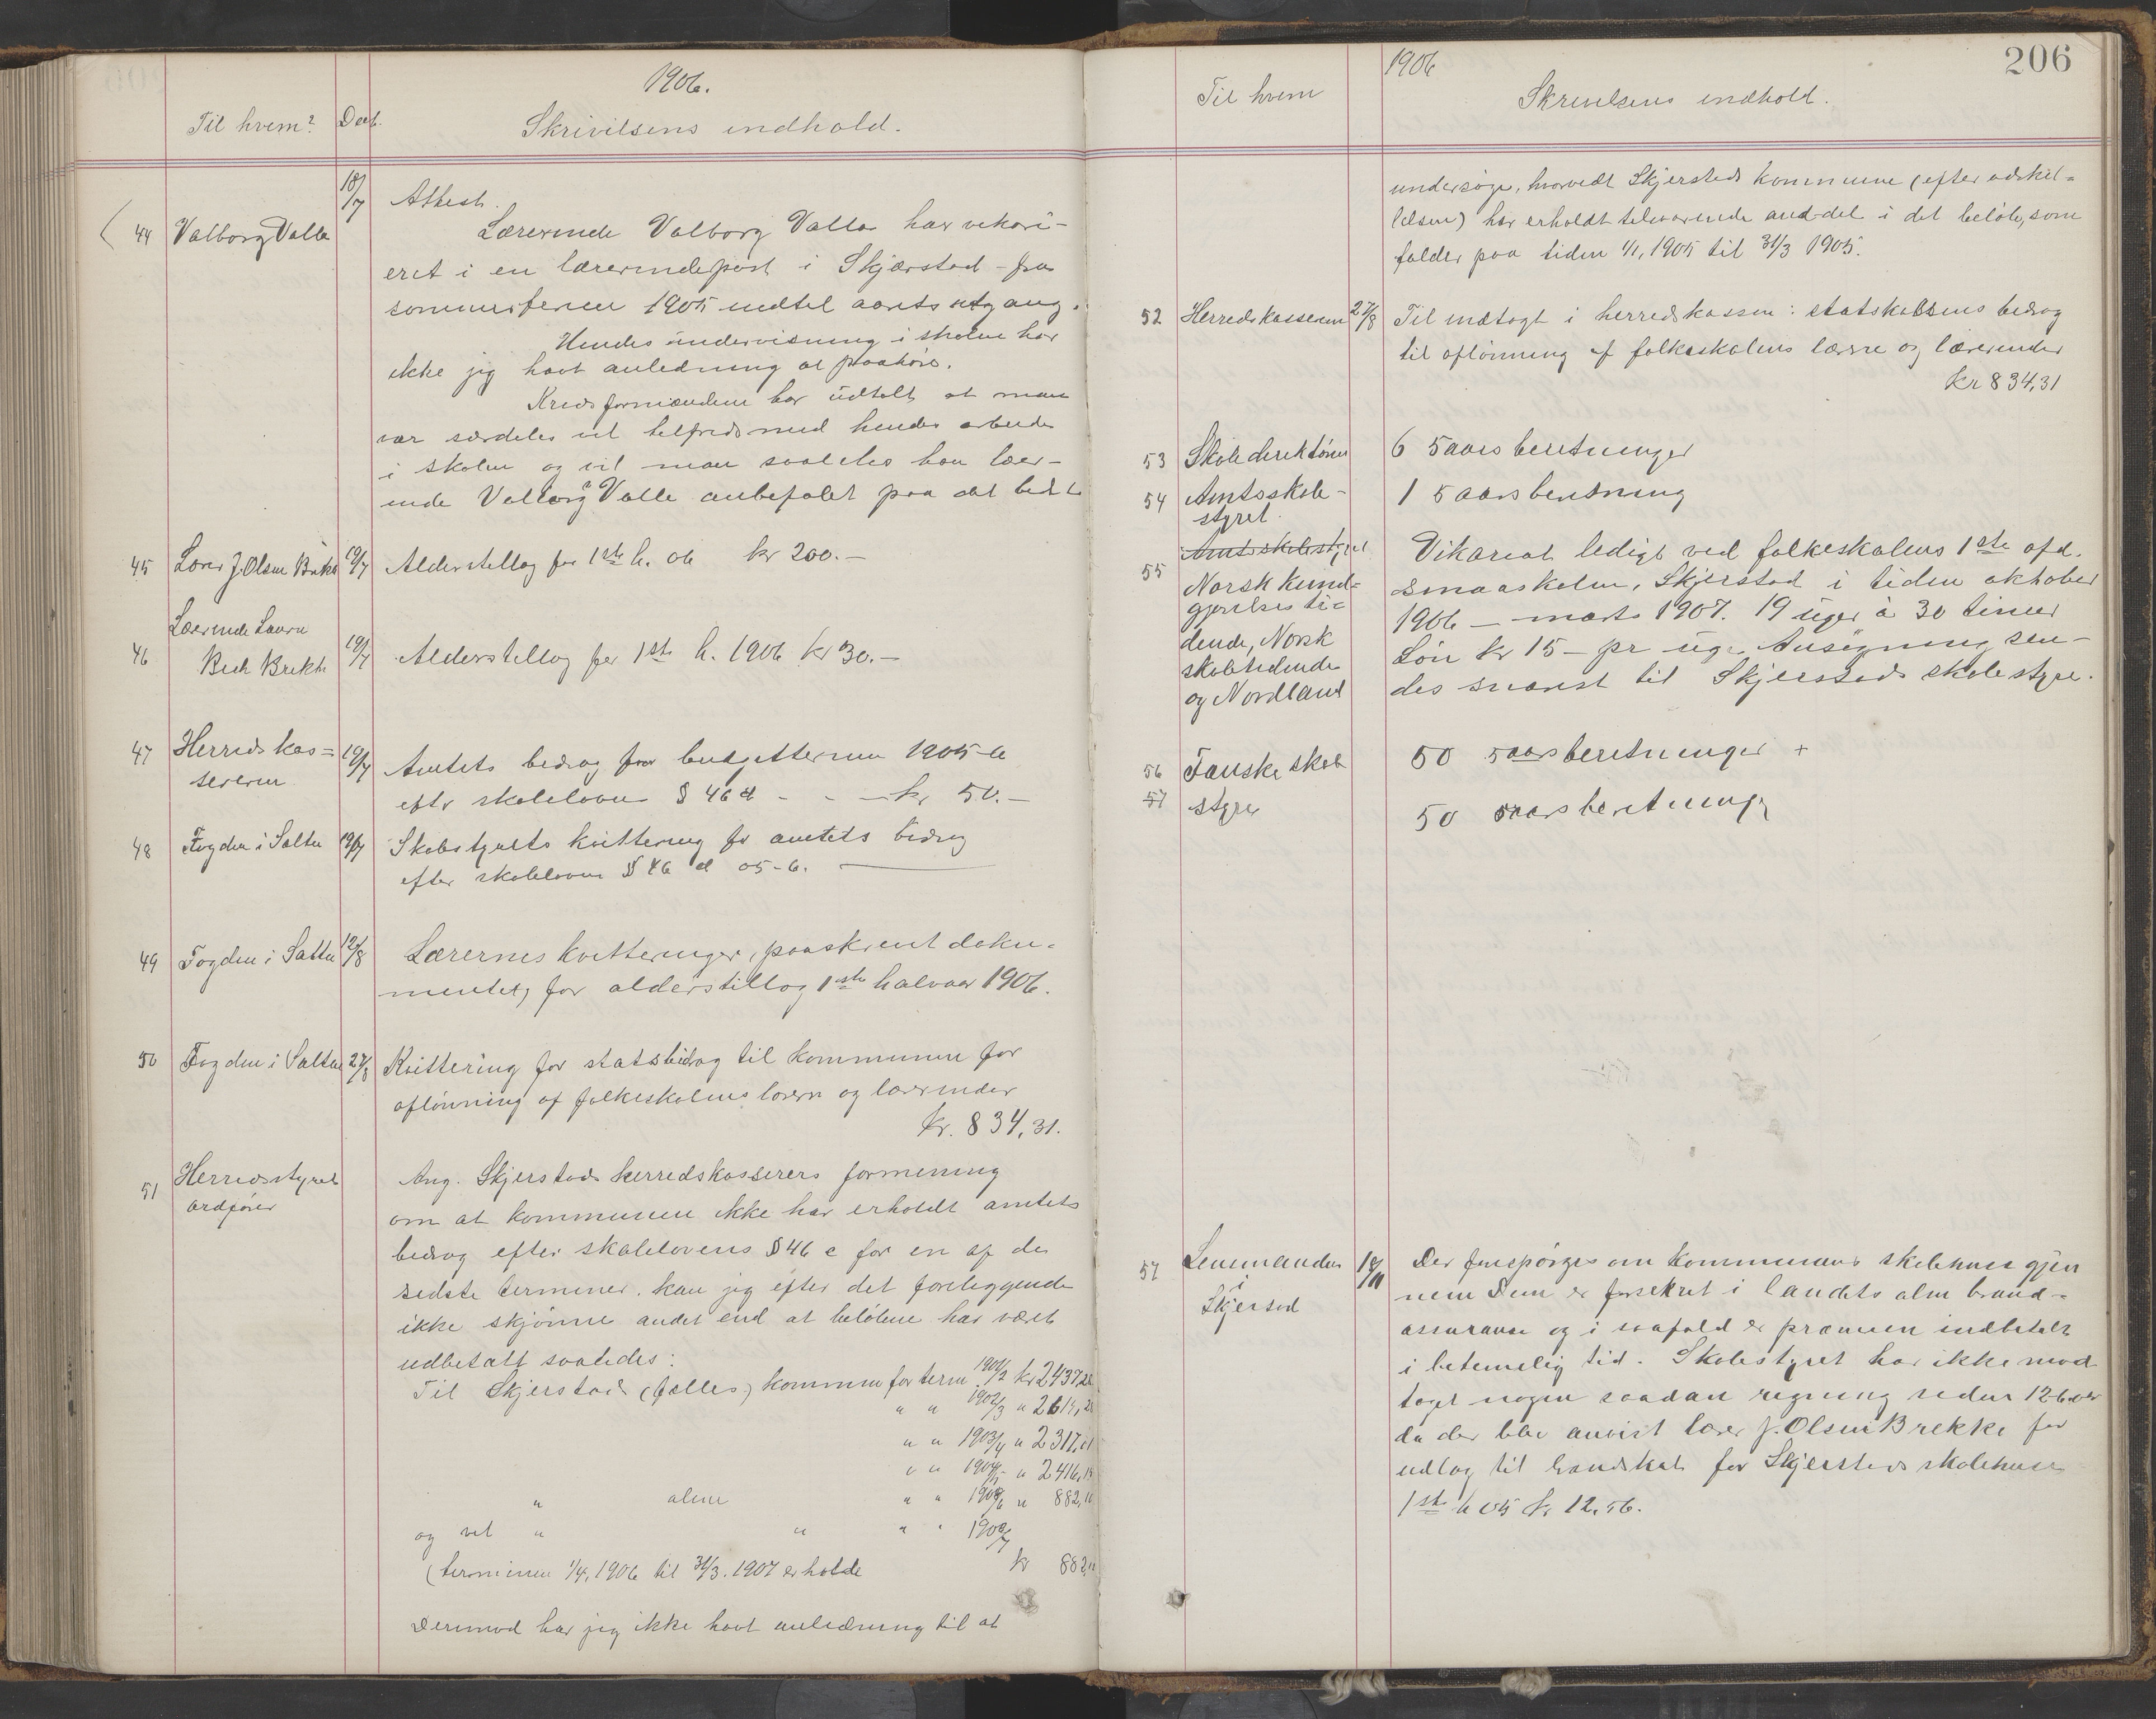 1906.
Til hvem? Dat. Skrivelsens indhold.
18/7 Attest.
44 Valborg Valle Lærerinde Valborg Valle har vikari-
eret i en lærerindepost i Skjærstad fra
sommerferien 1905 indtil aarets utgang.
Hendes undervisning i skolen har
ikke jeg havt anledning at paahøre.
Kredsformanden har udtalt at man
var særdeles vel tilfreds med hendes arbeide
i skolen og vil man saaledes ha lær-
inde Valborg Valle anbefalet paa det bedste
45 Lærer J. Olsen Brekke 19/7 Alderstillæg for 1ste h. 06 kr 200.-
Lærerinde Laura
46 Bech Brekke 19/7 Alderstillæg for 1ste h. 1906 kr 30.-
47 Herredskas= 19/7 Amtets bidrag for budgetterminen 1905-6
sereren efter skoleloven § 46 d - - - kr 50.-
48 Fogden i Salten 19/7 Skolestyrets kvittering for amtets bidrag
efter skoleloven § 46 d 05-6.
49 Fogden i Salten 12/8 Lærernes kvitteringer, paaskrevet doku-
mentet, for alderstillæg 1ste halvaar 1906.
50 Fogden i Salten 27/8 Kvittering for statsbidrag til kommunen for
aflønning af folkeskolens lærere og lærerinder
kr. 834,31.
51 Herredsstyrets Ang. Skjerstads herredskasserers formening
ordfører om at kommunen ikke har erholdt amtets
bidrag efter skolelovens § 46 c for en af de
sidste terminer, kan jeg efter det foreliggende
ikke skjønne andet end at beløbene har været
udbetalt saaledes:
Til Skjerstad (fælles) kommune for term. 1901/2 kr 2437,22
" " 1902/3 " 2614,22
" " 1903/4 " 2317,01
" " 1904/5 " 2416,19
" alene " " 1905/6 " 882,10
og vil " " " " 1906/7
(terminen 1/4, 1906 til 31/3. 1907 erholde kr 882,10
Derimod har jeg ikke havt anledning til at
206
1906
Til hvem Skrivelsens indhold.
undersøge, hvorvidt Skjerstads kommune (efter adskil=
lelsen) har erholdt tilsvarende anddel i det beløb, som
falder paa tiden 1/1, 1905 til 31/3 1905.
52 Herredskasseren 27/8 Til indtægt i herredskassen: statskassens bidrag
til aflønning af folkeskolens lærere og lærerinder
kr 834,31
53 Skoledirektøren 6 5aarsberetninger
54 Amtsskole- 1 5aarsberetning
styret.
Amtsskolestyret
55 Vikariat ledigt ved folkeskolens 1ste afd.
Norsk kund= smaaskolen, Skjerstad i tiden oktober
gjørelses ti= 1906 - marts 1907. 19 uger à 30 timer
dende, Norsk Løn kr 15- pr uge. Ansøgning sen-
skoletidende des snarest til Skjerstads skolestyre.
og Nordland
56 Fauske skole 50 5aarsberetninger +
57 styre 50 5aarsberetninger
57 Lensmanden 18/11 Der forespørges om kommunens skolehuse gjen
i nem Dem er forsikret i landets alm brand-
Skjerstad assurance og i saafald er præmien indbetalt
i betimelig tid. Skolestyret har ikke mod
taget nogen saadan regning siden 12-6-05
da der blev anvist lærer J. Olsen Brekke for
udlæg til brandskat for Skjerstads skolehuse
1ste h 05 kr 12.56.